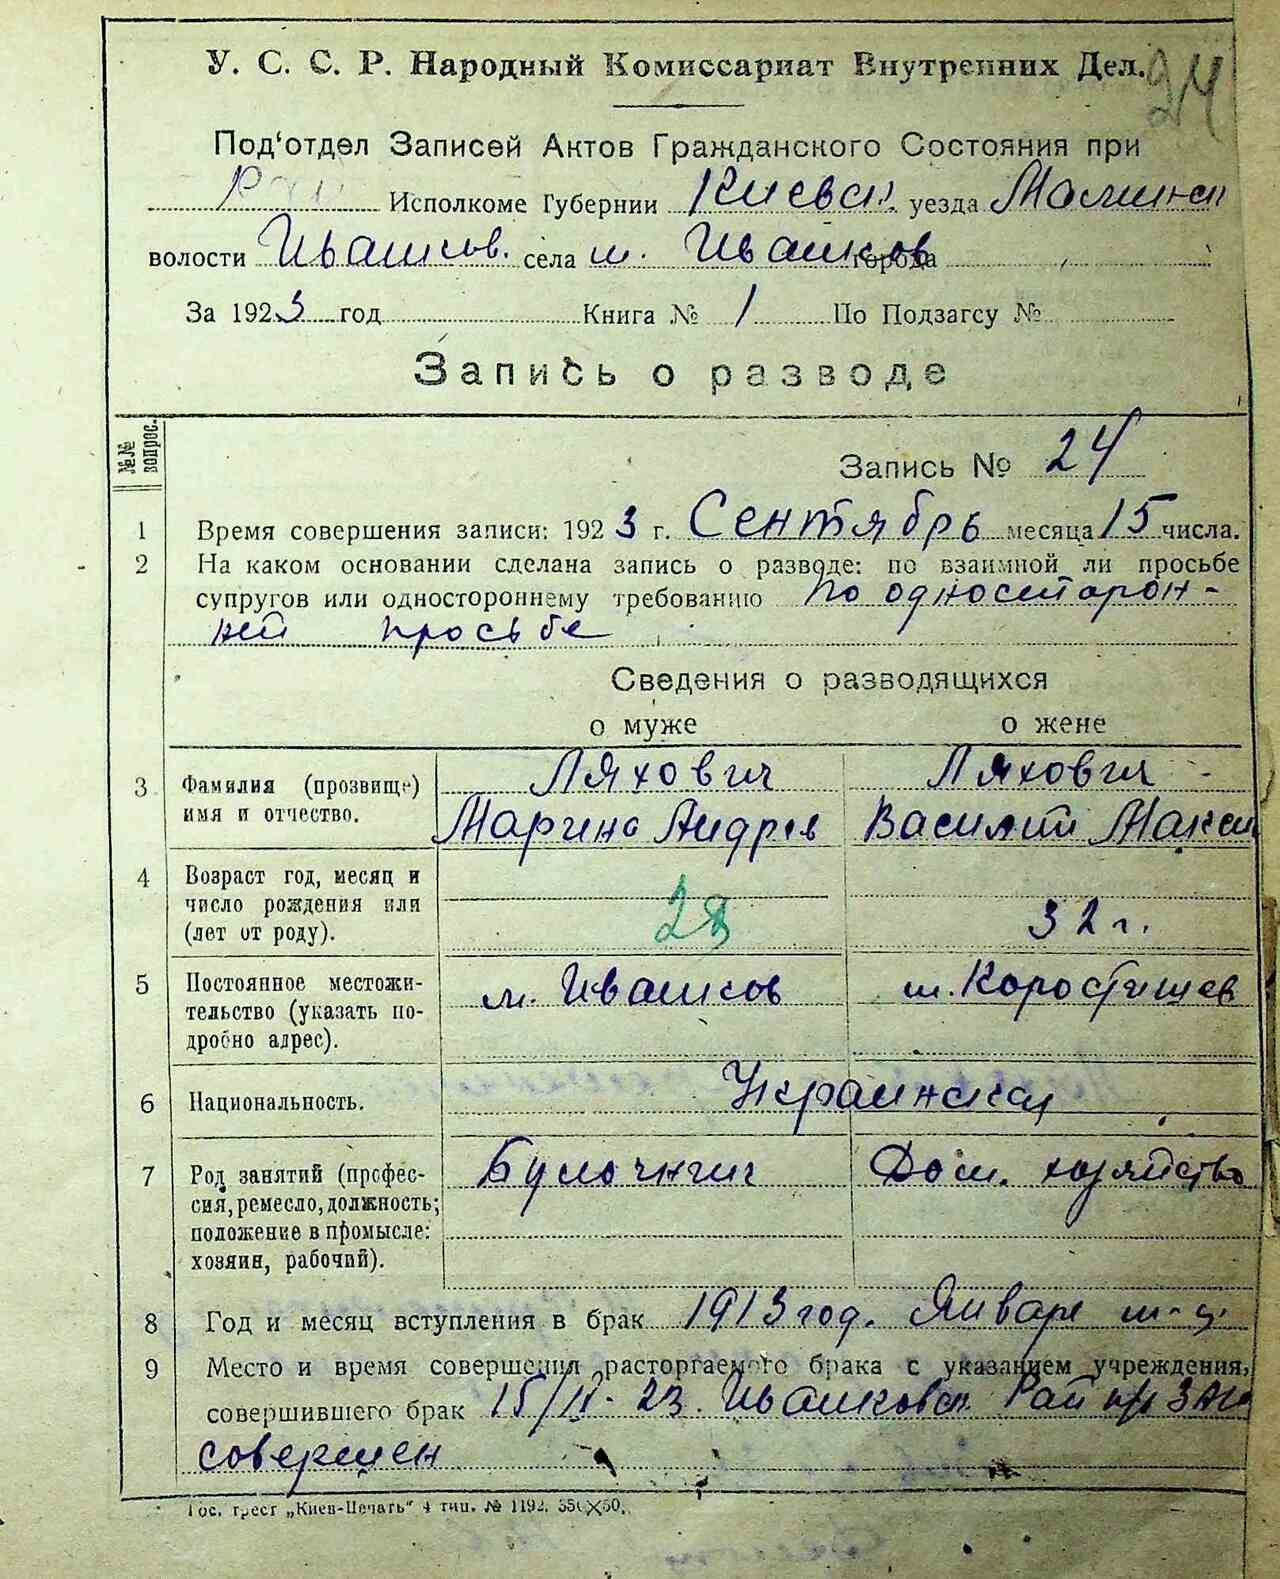 У. С. С. Р. Народный Комиссариат Внутренних Дел.
24
Под‘отдел Записей Актов Гражданского Состояния при
Рай Исполкоме Губернии Киевск. уезда Малинск
волости Иванков. села м. Иванков города
За 1923 год Книга № 1 По Подзагсу №
Запись о разводе
№№ вопрос.
Запись № 24
1 Время совершения записи: 1923 г. Сентябрь месяца 15 числа.
2 На каком основании сделана запись о разводе: по взаимной ли просьбе
супругов или одностороннему требованию По одностарон-
ней просьбе
Сведения о разводящихся
о муже о жене
3 Фамилия (прозвище) Ляхович Ляхович
имя и отчество. Марина Андрев Василий Макси
4 Возраст год, месяц и
число рождения или 28 32 г.
(лет от роду).
5 Постоянное местожи- м. Иванков м. Коростишев
тельство (указать по-
дробно адрес).
6 Национальность. Украинская
7 Род занятий (профес- Булочник Дом. хозяйство
сия, ремесло, должность;
положение в промысле:
хозяин, рабочий).
8 Год и месяц вступления в брак 1913 год. Январе м-ц
9 Место и время совершения расторгаемого брака с указанием учреждения,
совершившего брак 15/II-23. Иванковск. Рай
совершен
Гос. трест „Киев-Печать“ 4 тип. № 1192. 350×50.